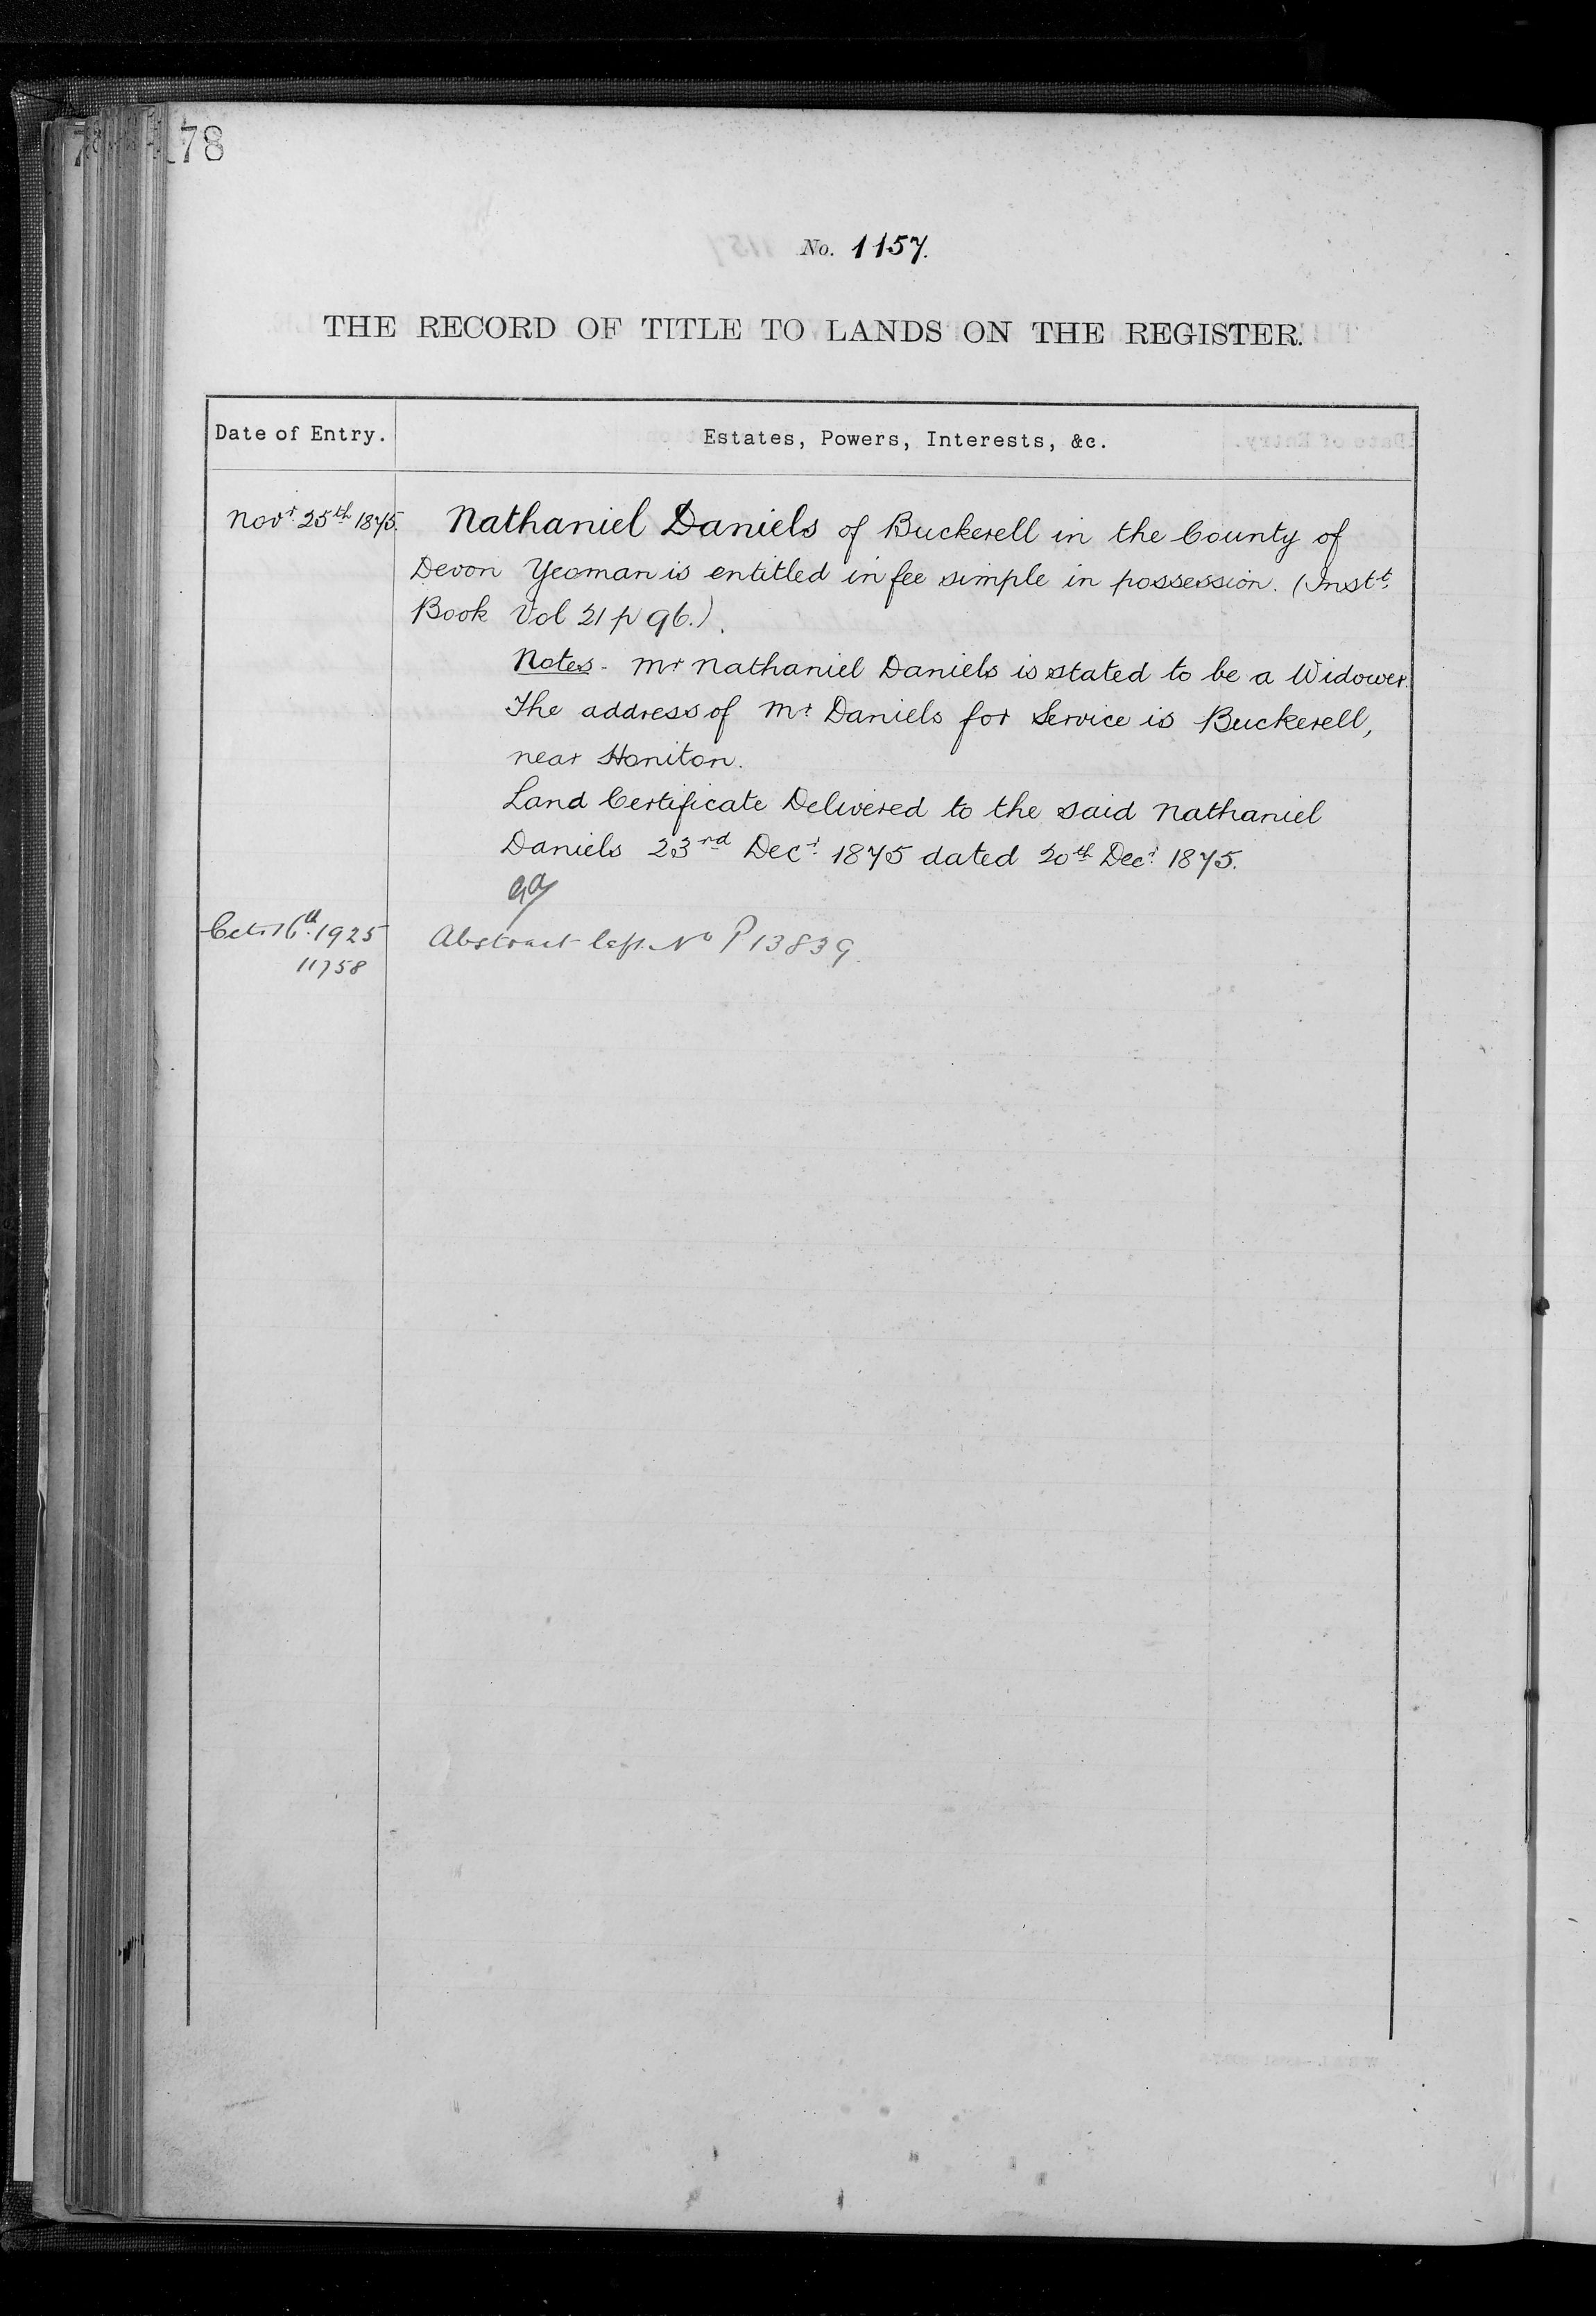 178
No. 1157.
THE RECORD OF TITLE TO LANDS ON THE REGISTER.
Date of Entry. Estates, Powers, Interests, &c.
Novr. 25th 1875. Nathaniel Daniels of Buckerell in the County of
Devon Yeoman is entitled in fee simple in possession. (Instt.
Book Vol 21 p 96.).
Notes - Mr Nathaniel Daniels is stated to be a Widower.
The address of Mr Daniels for Service is Buckerell,
near Honiton.
Land Certificate Delivered to the said Nathaniel
Daniels 23rd Decr. 1875 dated 20th Decr. 1875.
Octr. 16th. 1925 Abstract left No P 13839.
11758